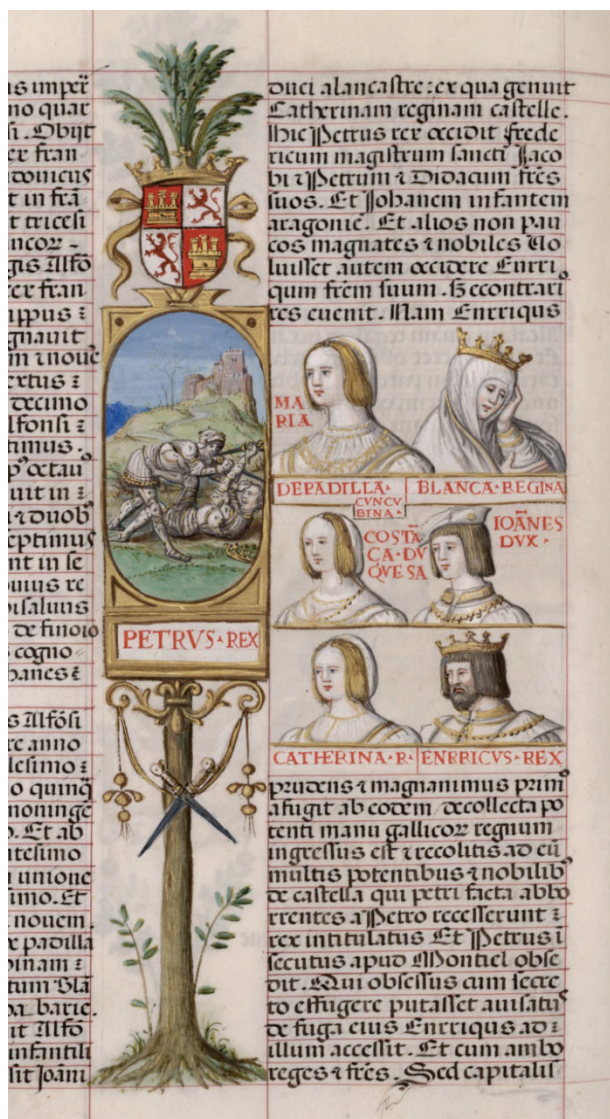 s imper̄
no quar
si. Obijt
er fran
donicus
t in frā
t tricesi
ncor -
gis Alfō
er fran
ippus ⁊
gnauit
m ⁊ noue
extus ⁊
decimo
lfonsi ⁊
timus.
octau
uit in ⁊
⁊ duob
eptimus
nt in se
uius re
de funoio
cogno
hanes ⁊
s Alfōsi
re anno
lesimo ⁊
o quinq̄
moninge
o. Et ab
tesimo
unione
imo. Et
nouem.
e padilla
binam ⁊
tum Blā
ba. barie.
it Alfō
infantili
sit Joāni
PETRVS · REX
duci alancastre: ex qua genuit
Catherinam reginam castelle.
Hic Petrus rex occidit frede
ricum magistrum sancti Jaco
bi ⁊ Petrum ⁊ Didacum frēs
suos. Et Johanem infantem
aragonie. Et alios non pau
cos magnates ⁊ nobiles Uo
luisset autem occidere Enrri
qum frēm suum. Sȝ econtrari
res euenit. Nam Enrriqus
MA
RIA
DEPADILLA ·
CVNCV
BINA ·
BLANCA · REGINA
COSTĀ
CA · DV
QVESA
IOĀNES
DVX ·
CATHERINA · R ·
ENRRICVS · REX
prudens ⁊ magnanimus prim⁹
afugit ab eodem decollecta po
tenti manu gallicor regnum
ingressus est ⁊ recolitis ad eū
multis potentibus ⁊ nobilib⁹
de castella qui petri facta abho
rrentes a Petro recesserunt ⁊
rex intitulatus Et Petrus ī
secutus apud Montiel obse
dit. Qui obsessus cum secre
to effugere putasset auisat⁹
de fuga eius Enrriqus ad ⁊
illum accessit. Et cum ambo
reges ⁊ frēs. Sed capitalis